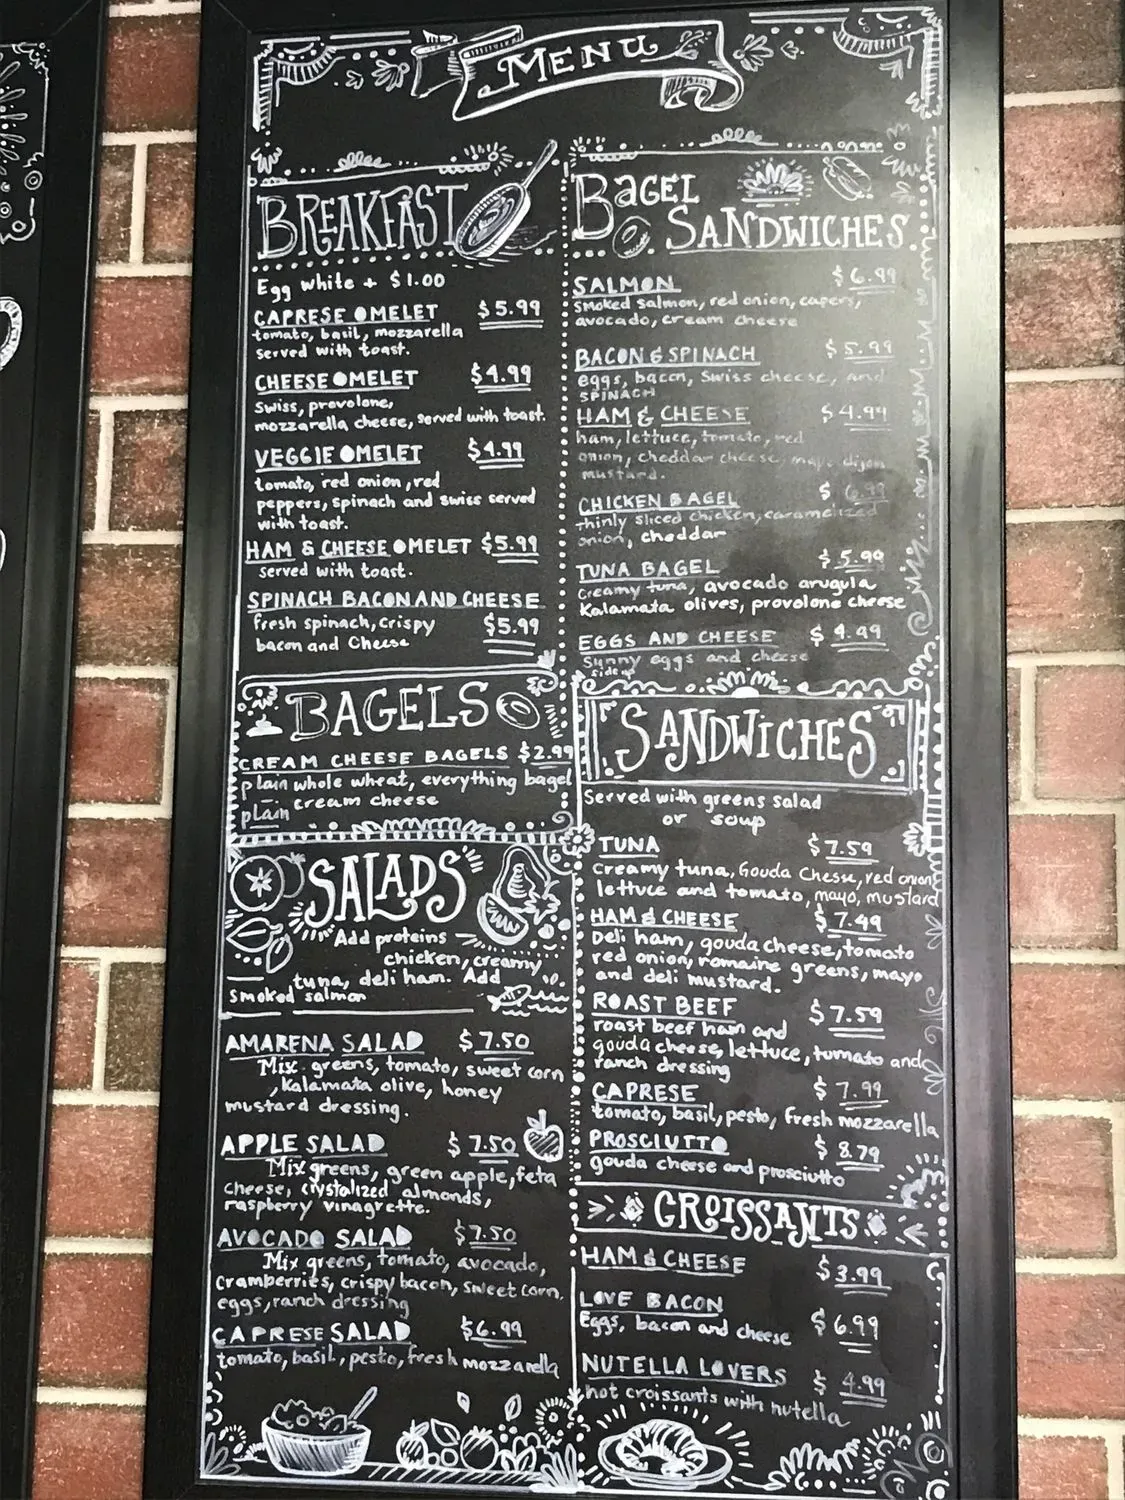 MENU
BREAKFAST
Egg white + $1.00
CAPRESE OMELET $5.99
tomato, basil, mozzarella
served with toast.
CHEESE OMELET $4.99
Swiss, provolone,
mozzarella cheese, served with toast.
VEGGIE OMELET $4.99
tomato, red onion, red
peppers, spinach and swiss served
with toast.
HAM & CHEESE OMELET $5.99
served with toast.
SPINACH BACON AND CHEESE
fresh spinach, crispy $5.99
bacon and Cheese
BAGELS
CREAM CHEESE BAGELS $2.99
plain whole wheat, everything bagel
plain cream cheese
SALADS
Add proteins
chicken, creamy
tuna, deli ham. Add
smoked salmon
AMARENA SALAD $7.50
Mix greens, tomato, sweet corn
, Kalamata olive, honey
mustard dressing.
APPLE SALAD $7.50
Mix greens, green apple, feta
cheese, crystalized almonds,
raspberry vinagrette.
AVOCADO SALAD $7.50
Mix greens, tomato, avocado,
Cramberries, crispy bacon, sweet corn,
eggs, ranch dressing
CAPRESE SALAD $6.99
tomato, basil, pesto, fresh mozzarella
BAGEL
SANDWICHES
SALMON $6.99
smoked salmon, red onion, capers,
avocado, cream cheese
BACON & SPINACH $5.99
eggs, bacon, Swiss cheese, and
SPINACH
HAM & CHEESE $4.99
ham, lettuce, tomato, red
onion, cheddar cheese, mayo dijon
mustard.
CHICKEN BAGEL $6.99
thinly sliced chicken, caramelized
onion, cheddar
TUNA BAGEL $5.99
Creamy tuna, avocado arugula
Kalamata olives, provolone cheese
EGGS AND CHEESE $4.99
Sunny eggs and cheese
side up
SANDWICHES
Served with greens salad
or soup
TUNA $7.59
Creamy tuna, Gouda Chesse, red onion
lettuce and tomato, mayo, mustard
HAM & CHEESE $7.49
Deli ham, gouda cheese, tomato
red onion, romaine greens, mayo
and deli mustard.
ROAST BEEF $7.59
roast beef ham and
gouda cheese, lettuce, tumato and
ranch dressing
CAPRESE $7.99
tomato, basil, pesto, fresh mozzarella
PROSCIUTTO $8.79
gouda cheese and prosciutto
CROISSANTS
HAM & CHEESE $3.99
LOVE BACON
Eggs, bacon and cheese $6.99
NUTELLA LOVERS $4.99
hot croissants with nutella